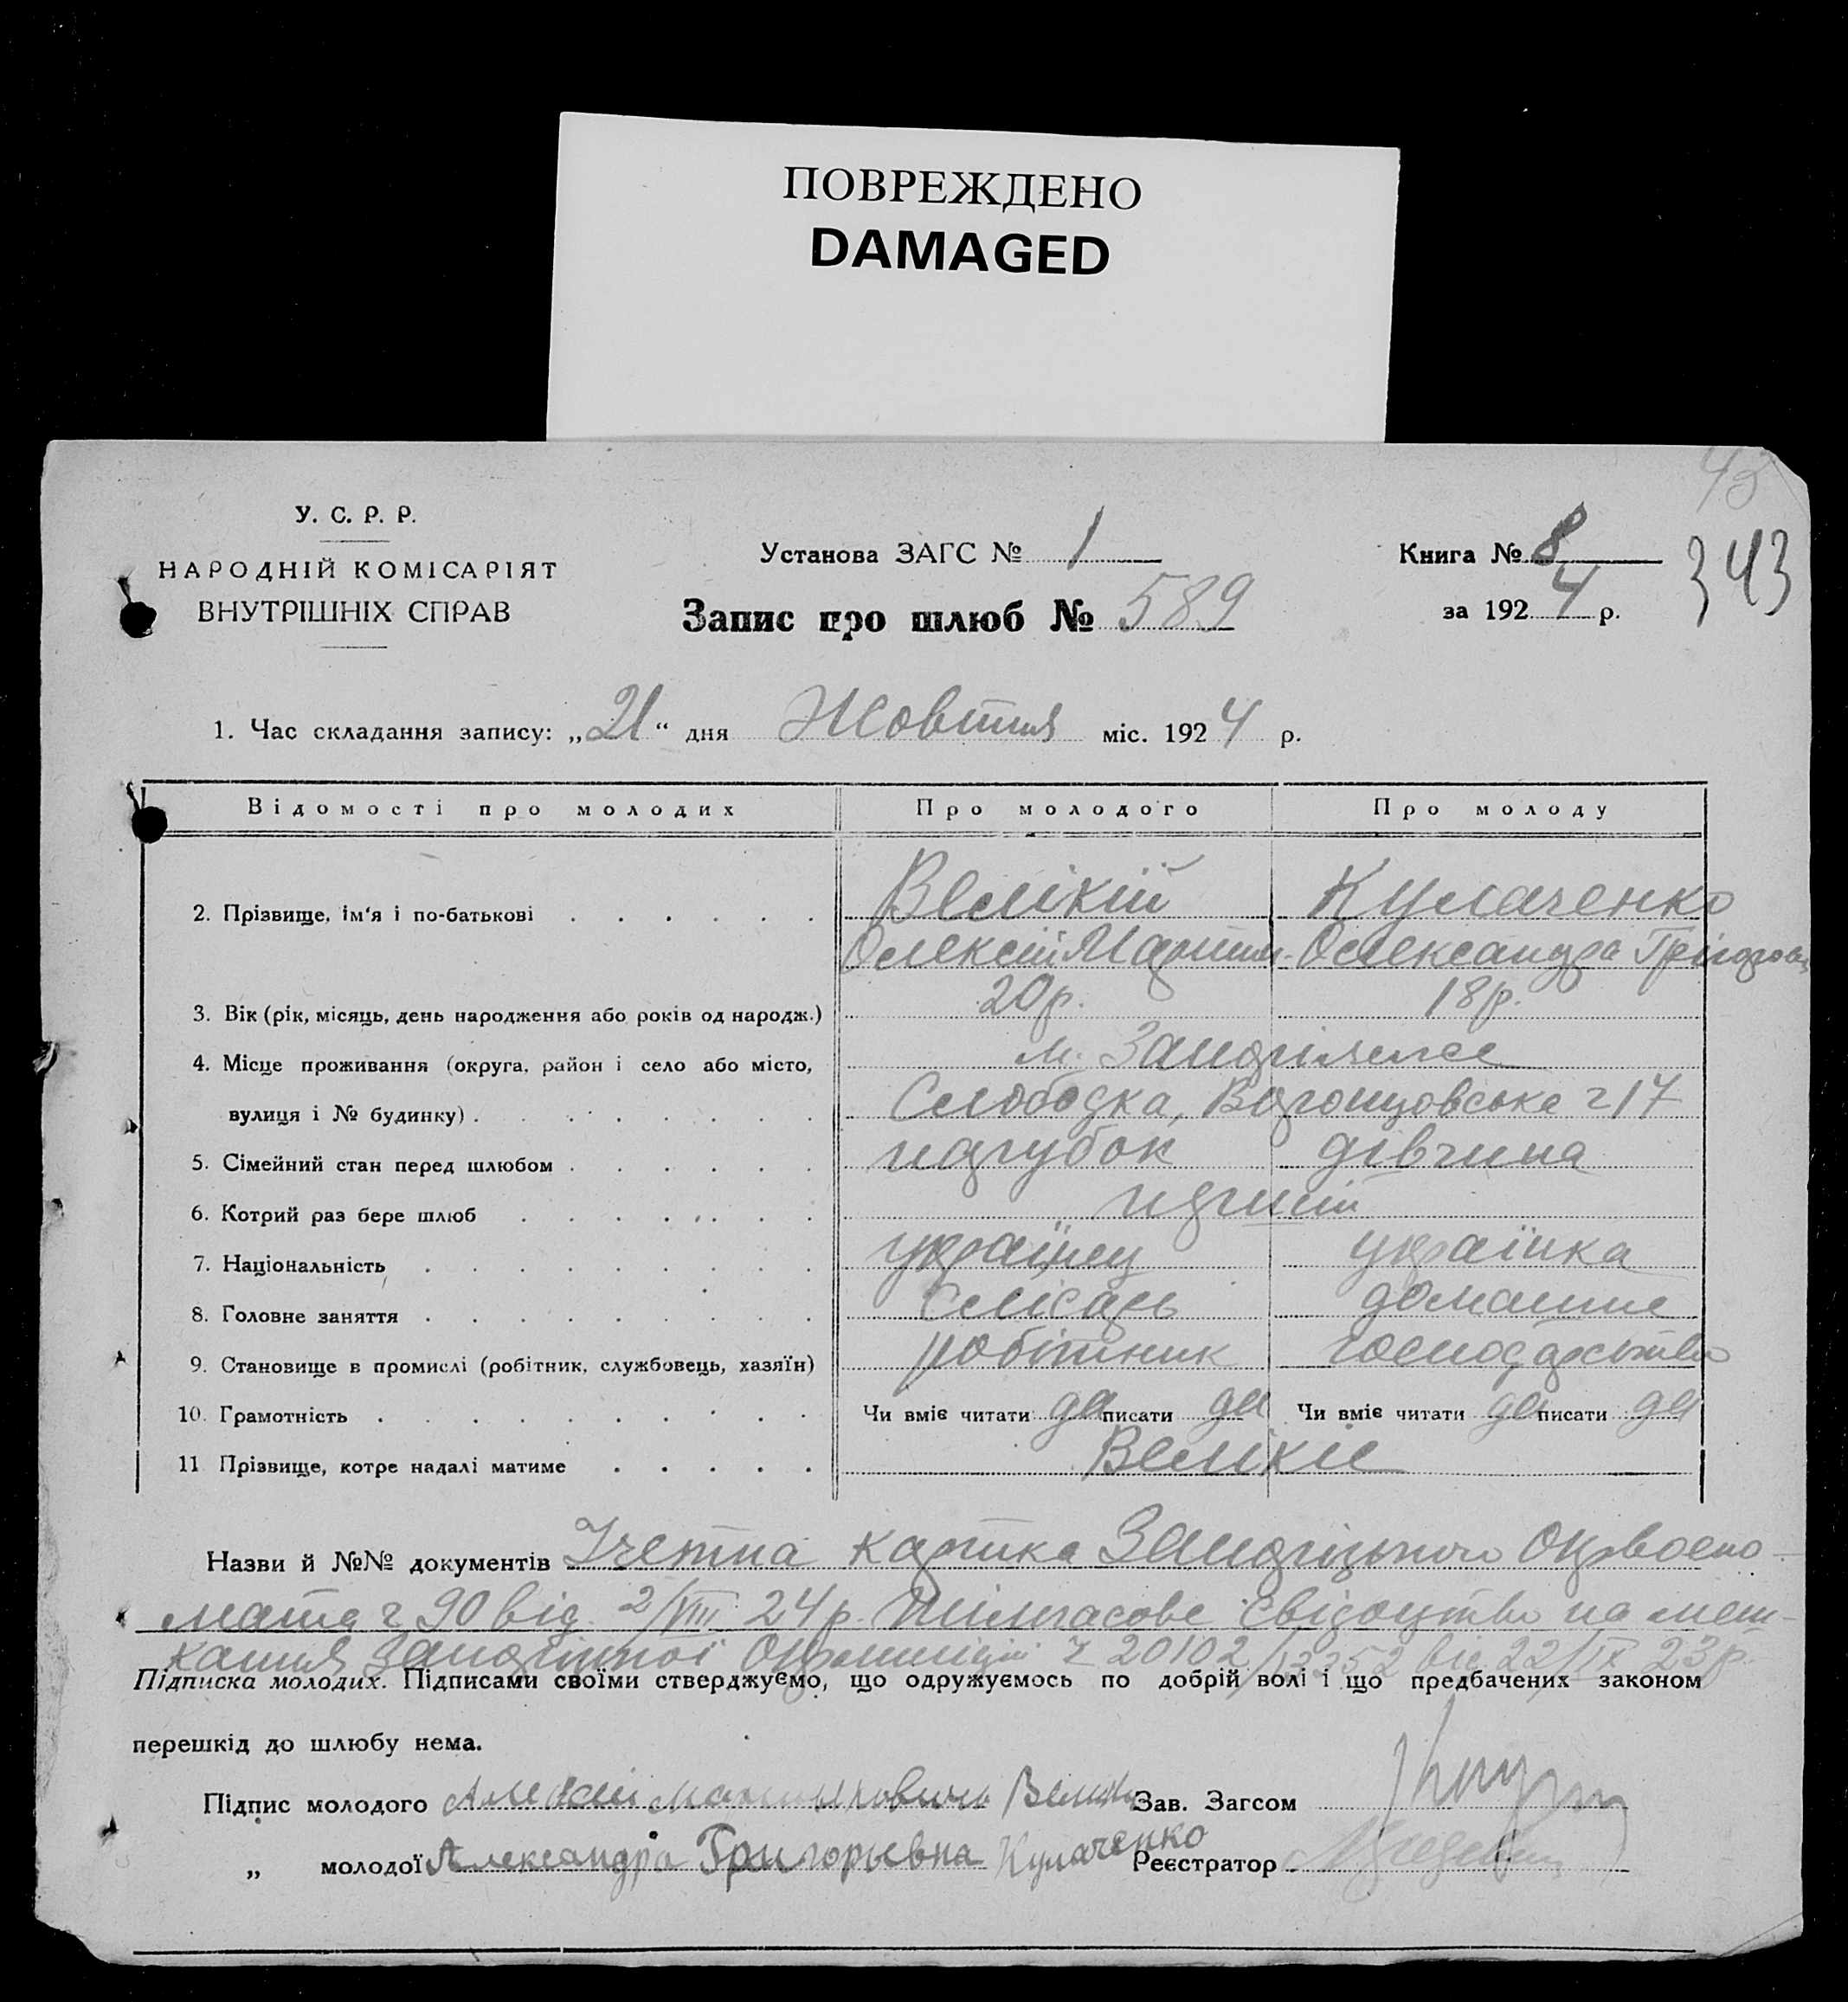 ПОВРЕЖДЕНО
DAMAGED
43
У. С. Р. Р.
НАРОДНІЙ КОМІСАРІЯТ
ВНУТРІШНІХ СПРАВ
Установа ЗАГС № 1
Запис про шлюб № 589
Книга № 8
за 1924 р.
343
1. Час складання запису: „21“ дня Жовтня міс. 1924 р.
Відомості про молодих Про молодого Про молоду
2. Прізвище, ім'я і по-батькові Велікій Кулаченко
Олексій Мартин. Олександра Грігоров
3. Вік (рік, місяць, день народження або років од народж.) 20р. 18р.
4. Місце проживання (округа, район і село або місто, м.
вулиця і № будинку) Слободка, Воронцовська 17
5. Сімейний стан перед шлюбом парубок дівчина
6. Котрий раз бере шлюб перший
7. Національність українец українка
8. Головне заняття Слісарь домашнє
9. Становище в промислі (робітник, службовець, хазяїн) робітник господарство
10. Грамотність Чи вміє читати да писати да Чи вміє читати да писати да
11 Прізвище, котре надалі матиме Велікіе
Назви й №№ документів Учетна картка Окрвоено-
мата ч 90 від 2/VIII 24р. Тимчасове свідоцтво на меш-
кання ч 20102/13352 від 22/IX 23р.
Підписка молодих. Підписами своїми стверджуємо, що одружуємось по добрій волі і що предбачених законом
перешкід до шлюбу нема.
Підпис молодого Алексей Мартынович Велик Зав. Загсом
„ молодої Александра Григорьевна Кулаченко Реєстратор